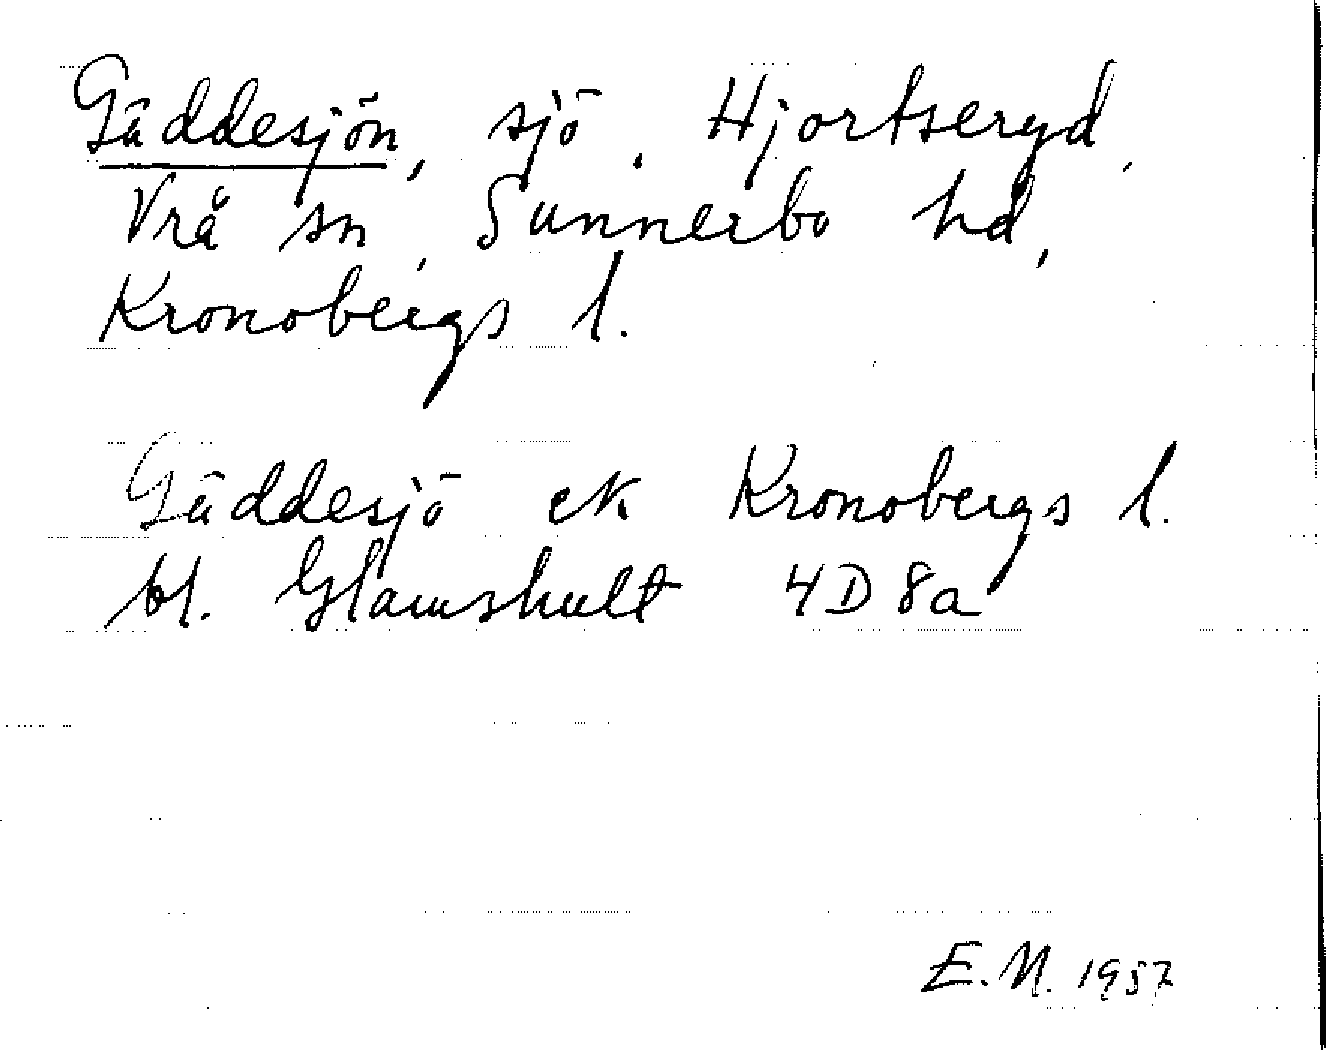 Gäddesjön, sjö, Hjortseryd,
Vrå sn, Sunnerbo hd,
Kronobergs l.
Gäddesjö ek Kronobergs l.
bl. Glamshult 4D8a
E.N. 1957